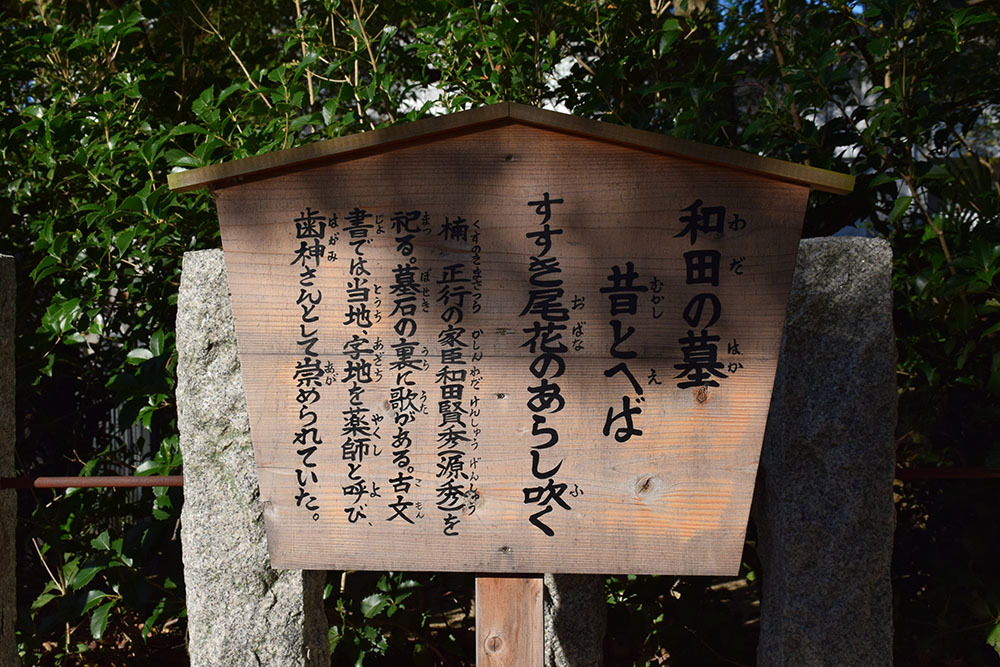 和田の墓
昔とへば
すすき尾花のあらし吹く
楠 正行の家臣和田賢秀(源秀)を
祀る。墓石の裏に歌がある。古文
書では当地、字地を薬師と呼び、
歯神さんとして崇められていた。